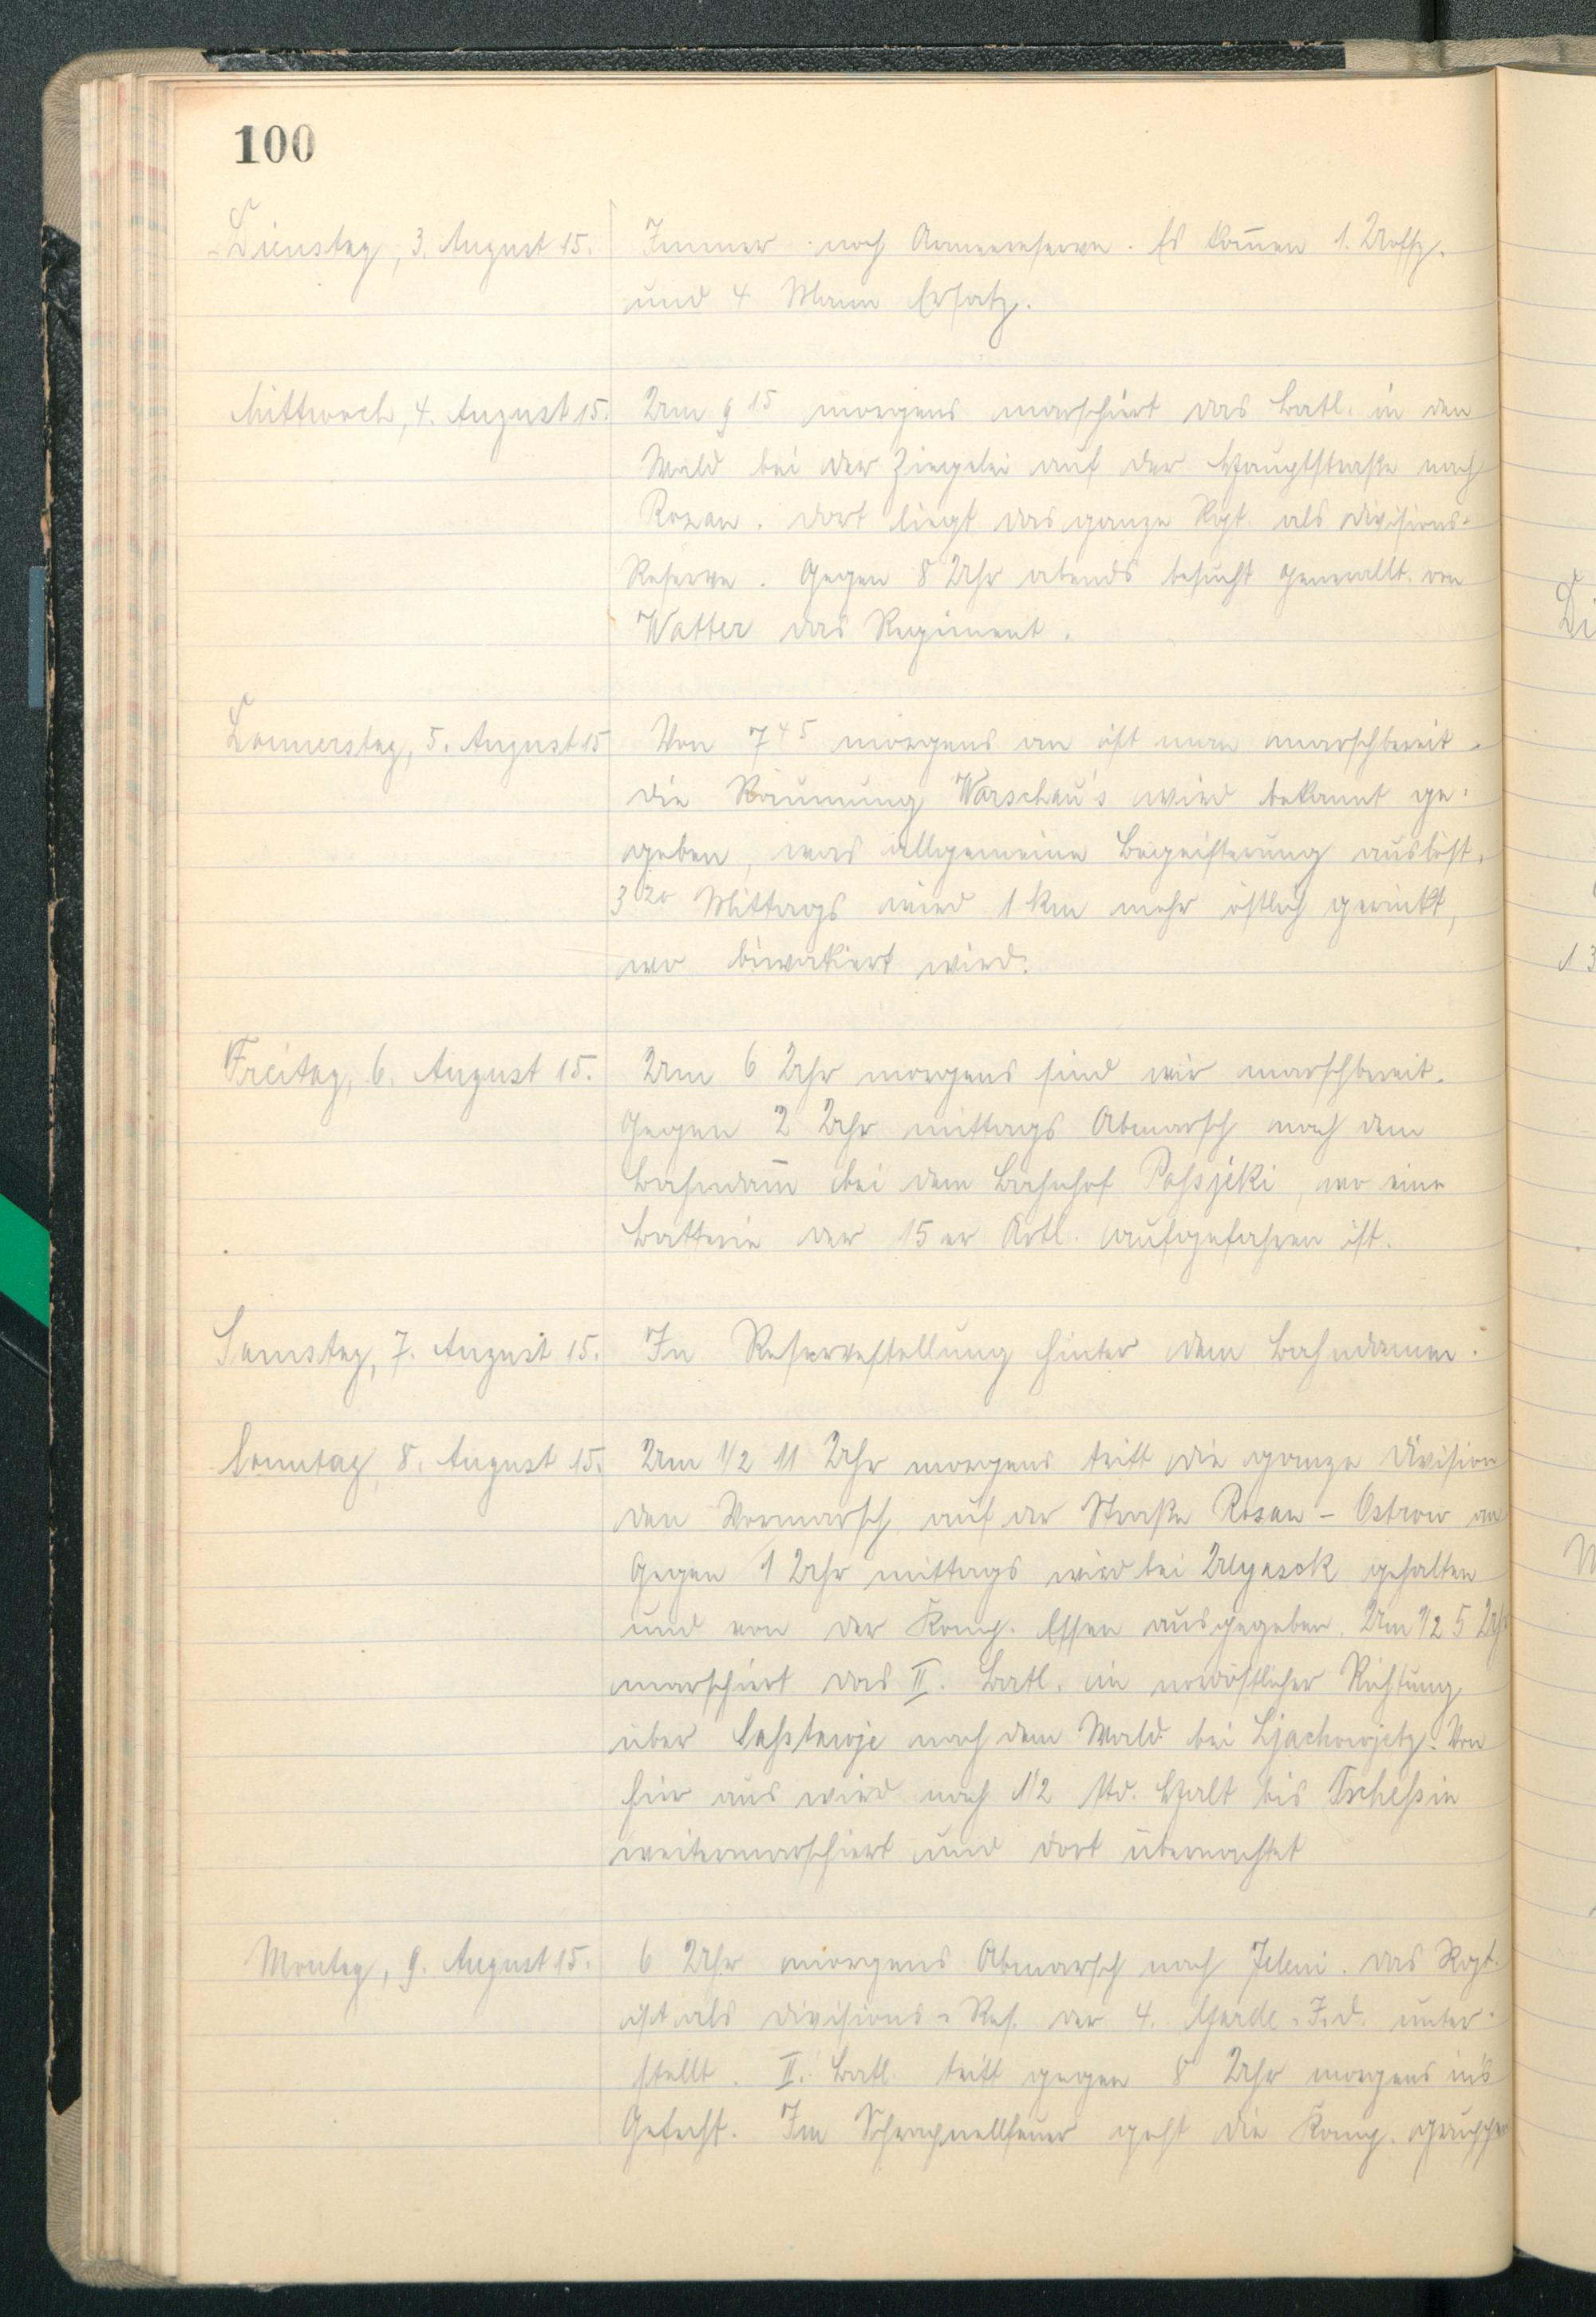 100
Dienstag, 3. August 15. Immer noch Armeereserve. Es kom̄en 1. Uoffz.
und 4 Mann Ersatz.
Mittwoch, 4. August 15. Um 9 15 morgens marschiert das Batl. in den
Wald bei der Ziegelei auf der Hauptstraße nach
Rozan. Dort liegt das ganze Rgt. als Divisions-
Reserve. Gegen 8 Uhr abends besucht Generallt. von
Watter das Regiment.
Donnerstag, 5. August 15 Von 7 45 morgens an ist man marschbereit.
Die Räumung Warschau's wird bekannt ge-
geben, was allgemeine Begeisterung auslöst.
3 20 Mittags wird 1 km mehr östlich gerückt,
wo biwakiert wird.
Freitag, 6. August 15. Um 6 Uhr morgens sind wir marschbereit.
Gegen 2 Uhr mittags Abmarsch nach dem
Bahndam̄ bei dem Bahnhof Passjeki, wo eine
Batterie der 15er Artl. aufgefahren ist.
Samstag, 7. August 15. In Reservestellung hinter dem Bahndamm.
Sonntag, 8. August 15. Um 1/2 11 Uhr morgens tritt die ganze Division
den Vormarsch auf der Straße Rosan - Ostrow an
Gegen 1 Uhr mittags wird bei Ulyasek gehalten
und von der Komp. Essen ausgegeben. Um 1/2 5 Uhr
marschiert das II. Batl. in nordöstlicher Richtung
über Sasstawje nach dem Wald bei Ljachowjetz. Von
hier aus wird nach 1/2 Std. Halt bis Tschessin
weitermarschiert und dort übernachtet
Montag, 9. August 15. 6 Uhr morgens Abmarsch nach Jeleni. Das Rgt.
ist als Divisions-Res. der 4. Garde-I.D. unter-
stellt. II. Batl. tritt gegen 8 Uhr morgens in's
Gefecht. Im Schrapnellfeuer geht die Komp. gruppen